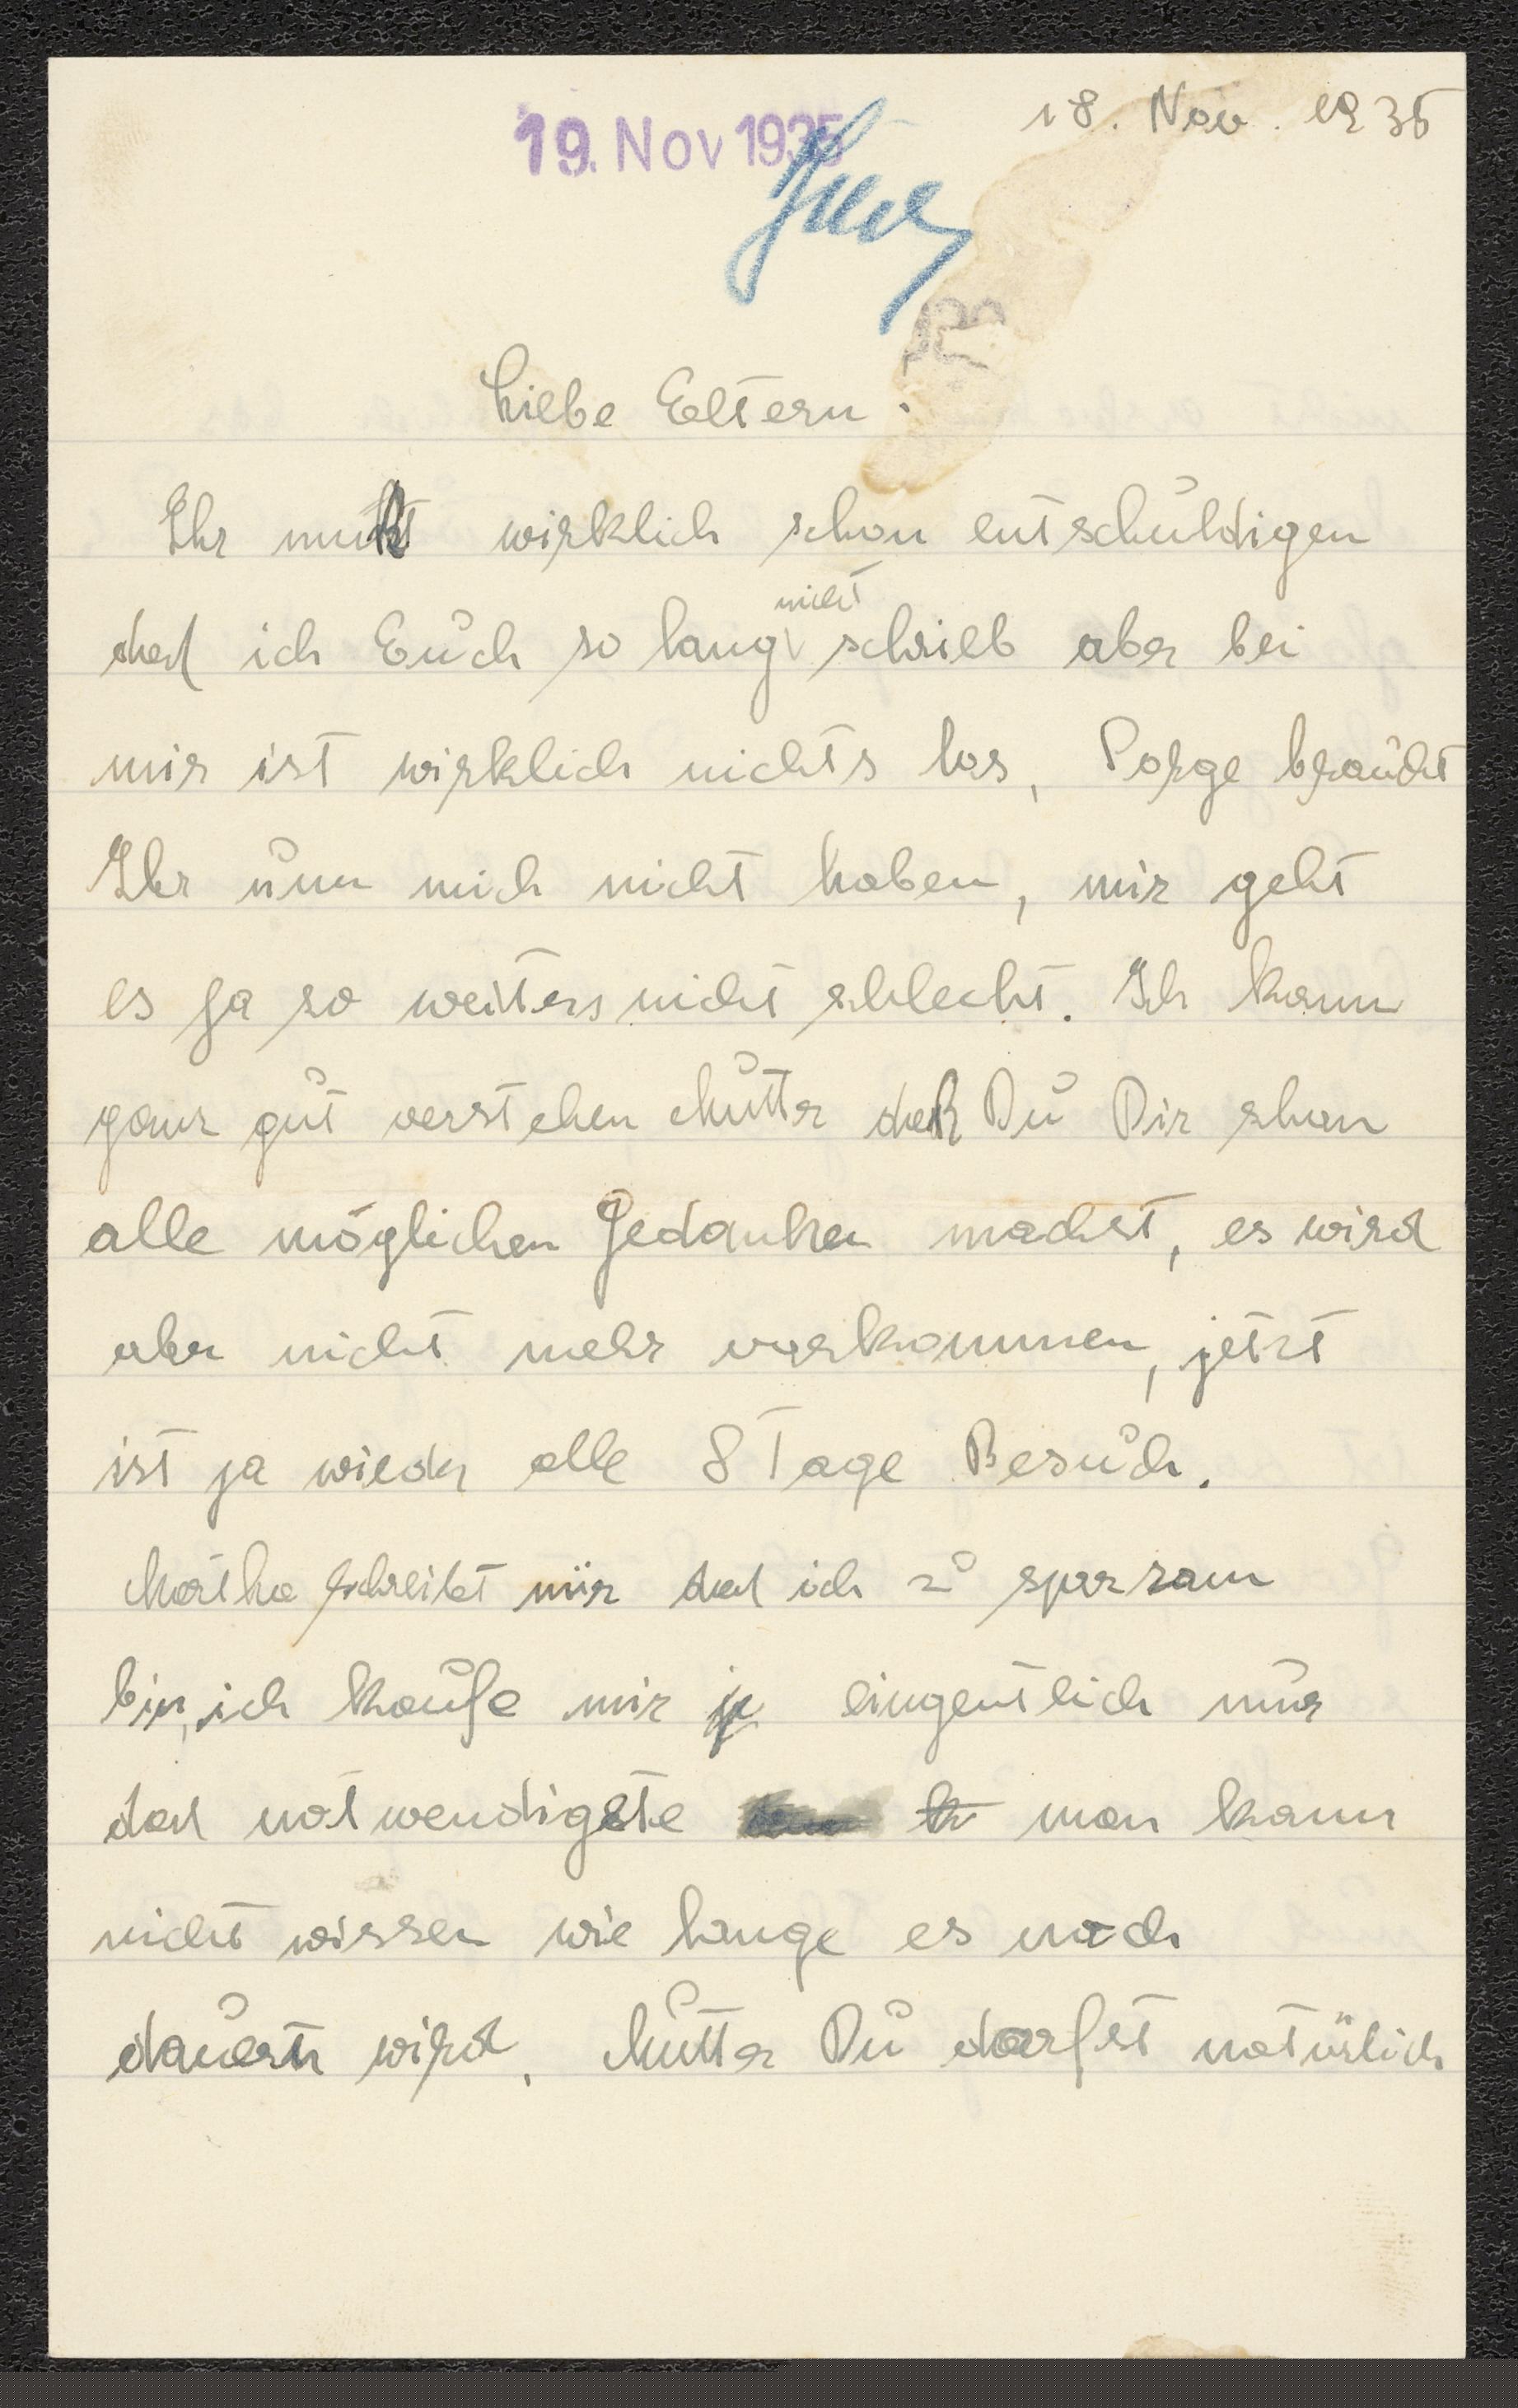 18. Nov. 1935
19. Nov 1935
Liebe Eltern!
Ihr mußt wirklich schon entschuldigen
das ich Euch so lang nicht schrieb aber bei
mir ist wirklich nichts los, Sorge braucht
Ihr um mich nicht haben, mir geht
es ja so weiters nicht schlecht. Ich kann
ganz gut verstehen Mutter daß Du Dir schon
alle möglichen Gedanken machst, es wird
aber nicht mehr vorkommen, jetzt
ist ja wieder alle 8 Tage Besuch.
Martha schreibt mir das ich zu sparsam
bin, ich kaufe mir ja eingentlich nur
das notwendigste man kann
nicht wissen wie lange es noch
dauern wird. Mutter Du darfst natürlich